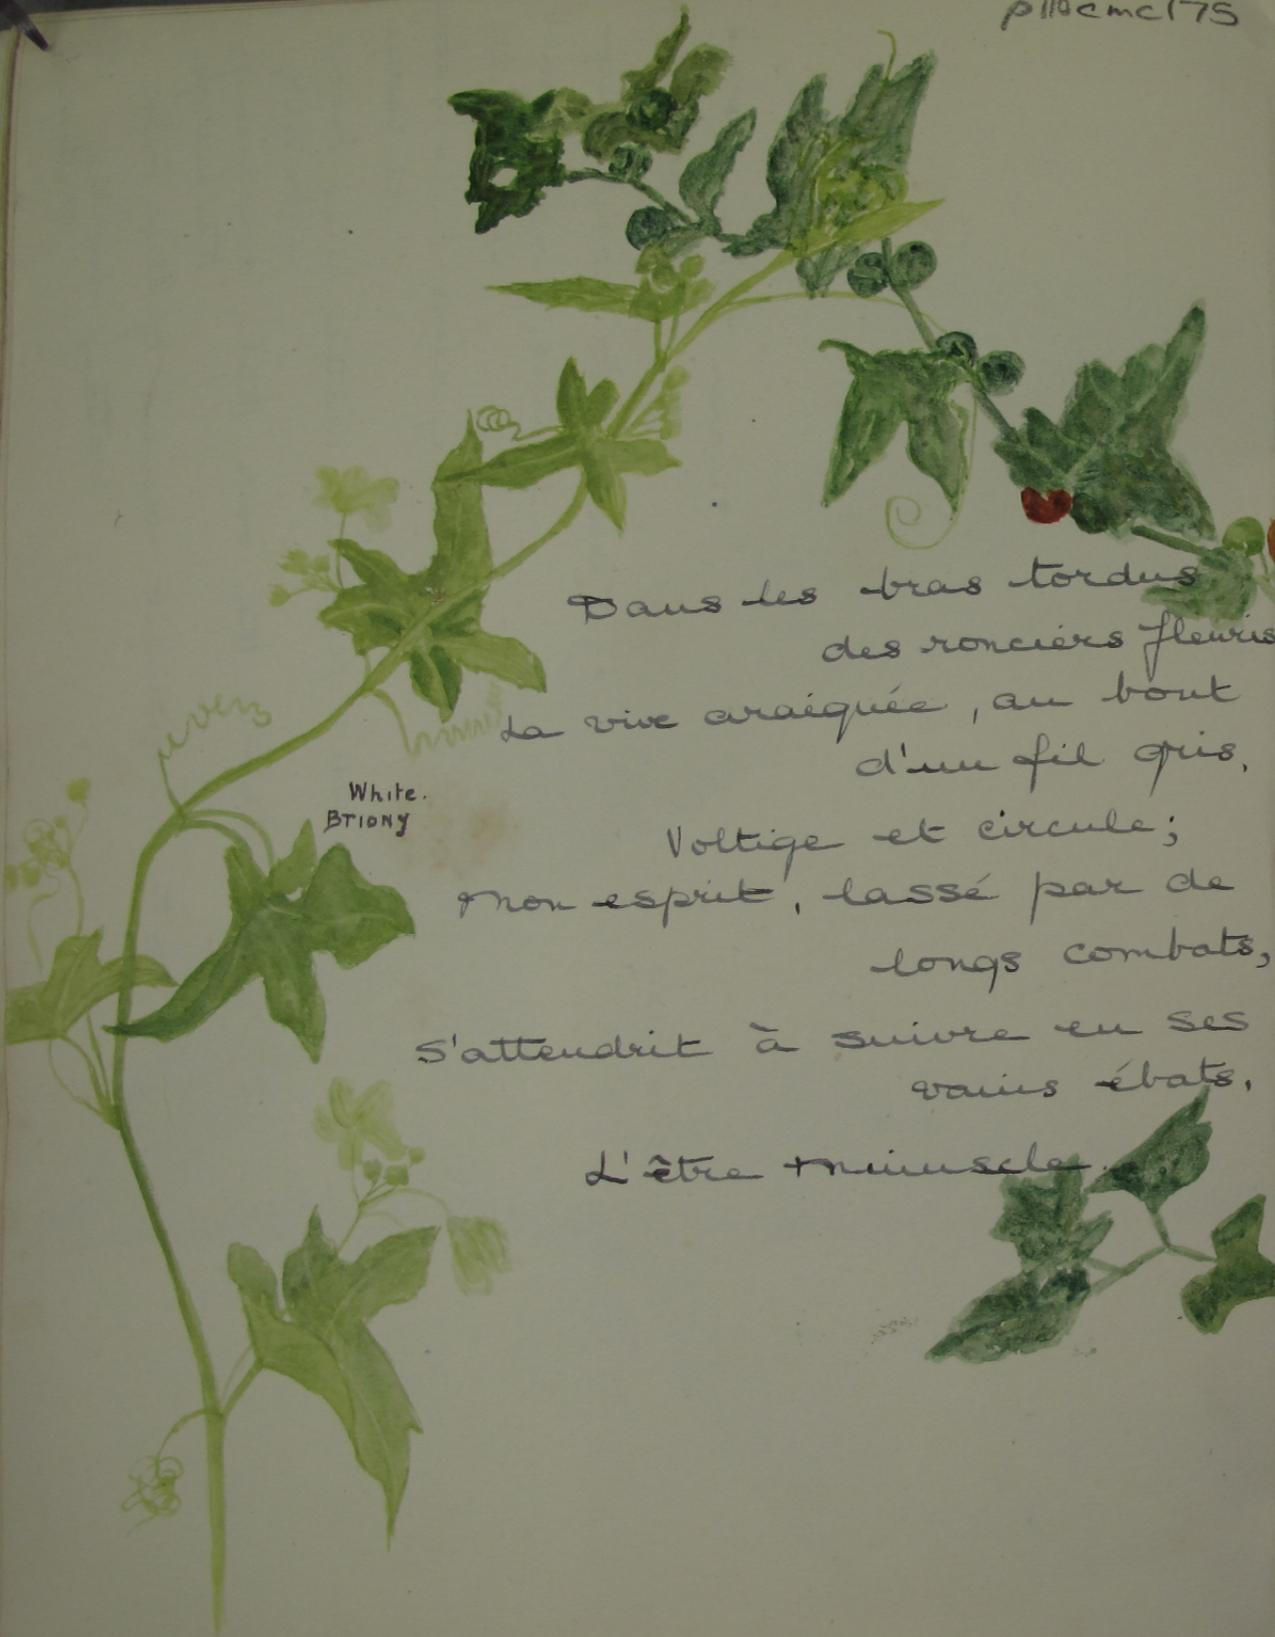 p110cmc175
Dans les bras tordus
des ronciers fleuris
La vive araignée, au bout
d'un fil gris,
White.
Briony
Voltige et circule;
Mon esprit, lassé par de
longs combats,
S'attendrit à suivre en ses
vains ébats,
L'être minuscle.